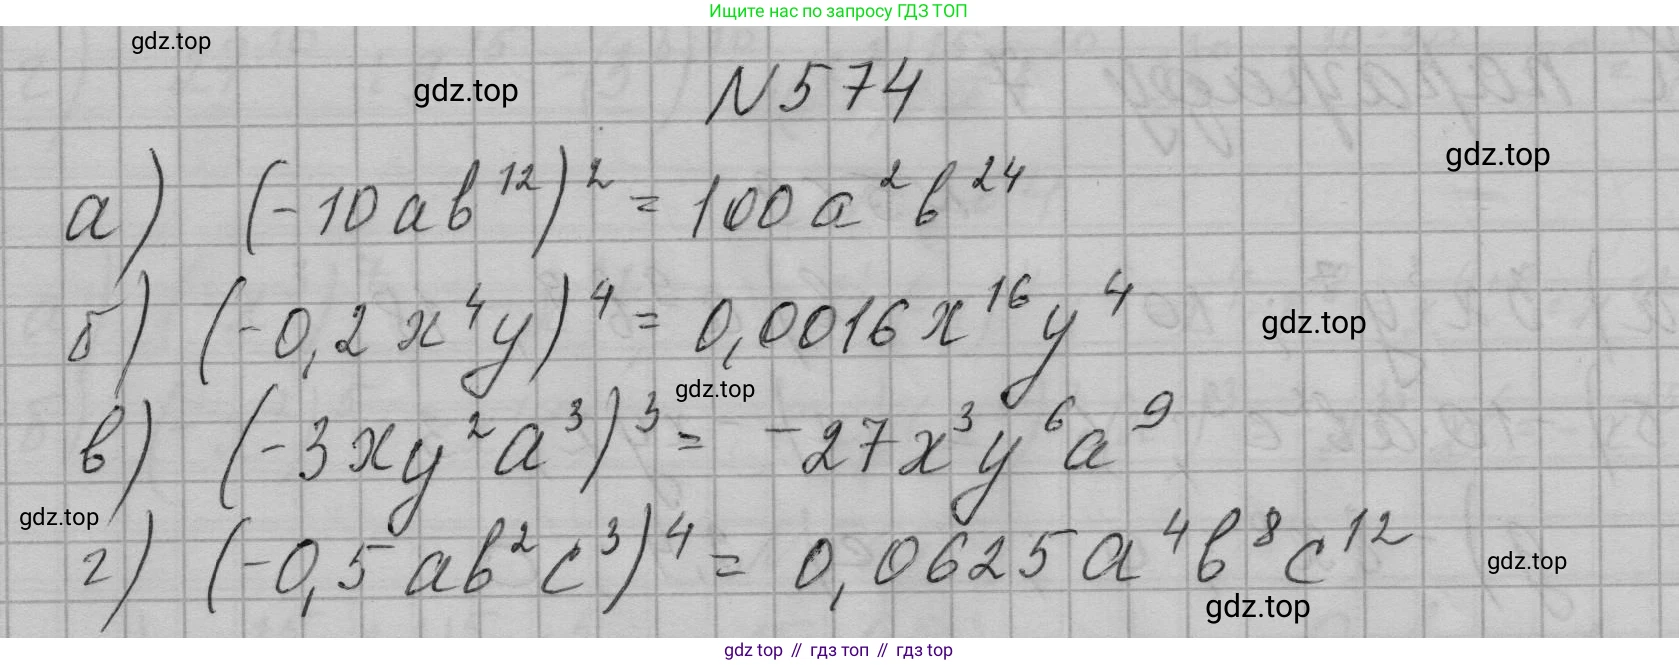 Ищите нас по запросу ГДЗ ТОП
gdz.top
gdz.top
N574
gdz.top
а) (-10ab¹²)² = 100a²b²⁴
б) (-0,2x⁴y)⁴ = 0,0016x¹⁶y⁴
gdz.top
gdz.top
в) (-3xy²a³)³ = -27x³y⁶a⁹
gdz.top
г) (-0,5ab²c³)⁴ = 0,0625a⁴b⁸c¹²
gdz.top
gdz.top
gdz top // гдз топ // гдз top